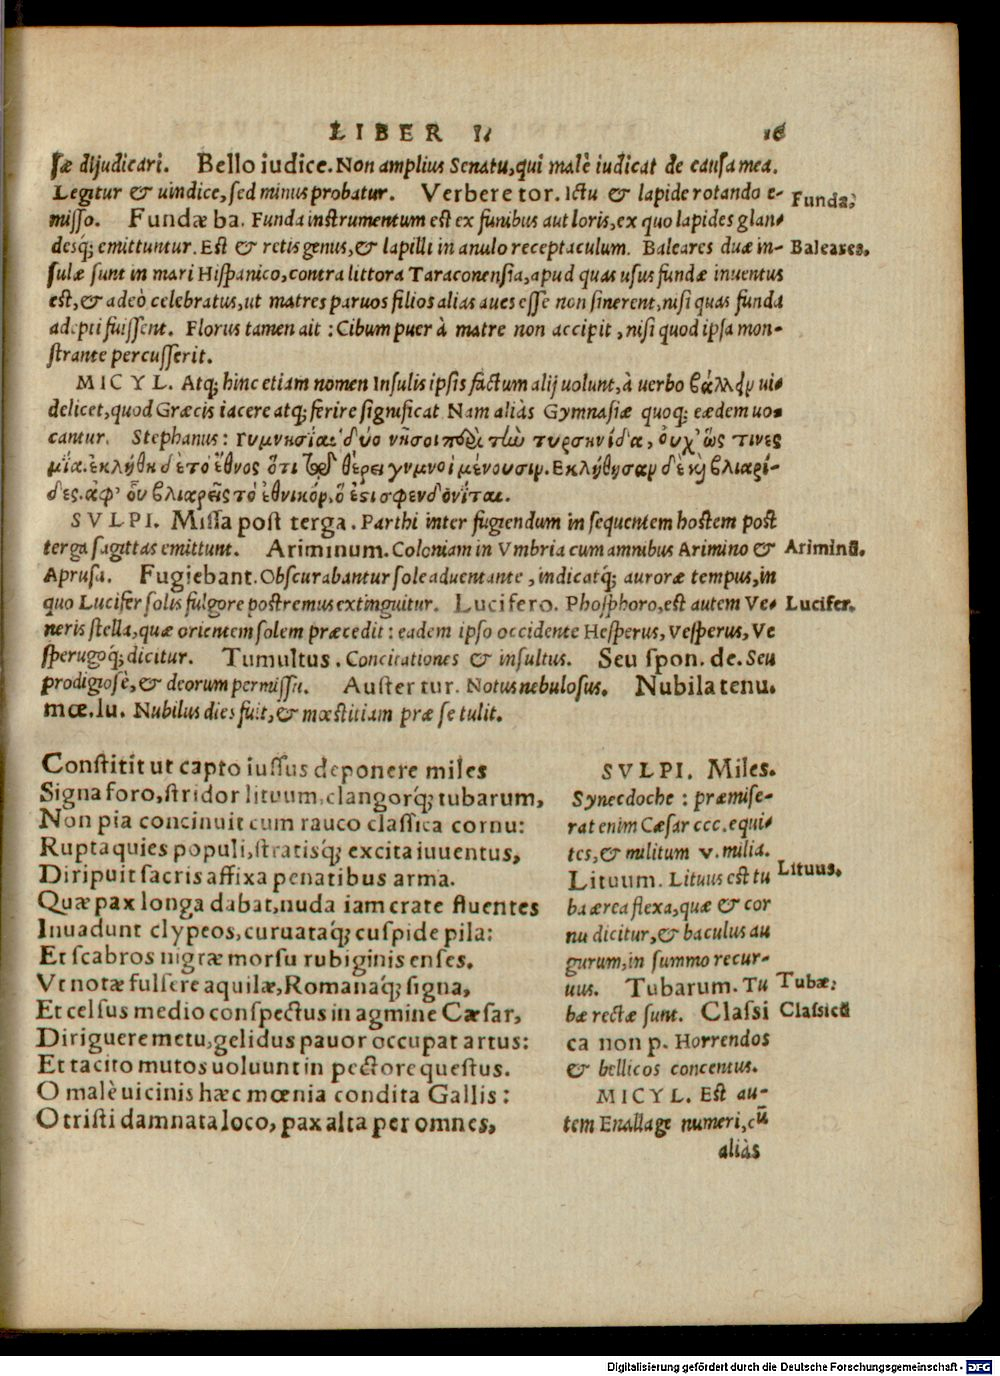 LIBER I. 16
sæ dijudicari. Bello iudice. Non amplius Senatu, qui malè iudicat de causa mea.
Legitur & uindice, sed minus probatur. Verbere tor. Ictu & lapide rotando e- Funda.
misso. Fundæ ba. Funda instrumentum est ex funibus aut loris, ex quo lapides glan-
desq; emittuntur. Est & retis genus, & lapilli in anulo receptaculum. Baleares duæ in- Baleares.
sulæ sunt in mari Hispanico, contra littora Taraconensia, apud quas usus fundæ inuentus
est, & adeò celebratus, ut matres paruos filios alias aues esse non sinerent, nisi quas funda
adepti fuissent. Florus tamen ait: Cibum puer à matre non accipit, nisi quod ipsa mon-
strante percusserit.
MICYL. Atq; hinc etiam nomen Insulis ipsis factum alij uolunt, à uerbo βάλλειν ui-
delicet, quod Græcis iacere atq; ferire significat Nam aliàs Gymnasiæ quoq; eædem uo-
cantur. Stephanus: γυμνησίαι δύο νῆσοι περὶ τὴν τυρσηνίδα, οὐχ' ὥς τινες
μία. ἐκλήθη δὲ τὸ ἔθνος ὅτι θέρει γυμνοὶ μένουσιν. Εκλήθησαν δὲ καὶ βλιαρί-
δες. ἀφ' οὗ βλιαρεῖς τὸ ἐθνικόν, ὅ ἐστι σφενδονῖται.
SVLPI. Missa post terga. Parthi inter fugiendum insequentem hostem post
terga sagittas emittunt. Ariminum. Coloniam in Vmbria cum amnibus Arimino & Ariminũ.
Aprusa. Fugiebant. Obscurabantur sole aduentante, indicatq; auroræ tempus, in
quo Lucifer solis fulgore postremus extinguitur. Lucifero. Phosphoro, est autem Ve- Lucifer.
neris stella, quæ orientem solem præcedit: eadem ipso occidente Hesperus, Vesperus, Ve
sperugoq; dicitur. Tumultus. Concitationes & insultus. Seu spon. de. Seu
prodigiosè, & deorum permissu. Auster tur. Notus nebulosus. Nubila tenu.
mœ. lu. Nubilus dies fuit, & mœstitiam præ se tulit.
Constitit ut capto iussus deponere miles
Signa foro, stridor lituum, clangorq́; tubarum,
Non pia concinuit cum rauco classica cornu:
Rupta quies populi, stratisq́; excita iuuentus,
Diripuit sacris affixa penatibus arma.
Quæ pax longa dabat, nuda iam crate fluentes
Inuadunt clypeos, curuataq́; cuspide pila:
Et scabros nigræ morsu rubiginis enses.
Vt notæ fulsere aquilæ, Romanaq́; signa,
Et celsus medio conspectus in agmine Cæsar,
Diriguere metu, gelidus pauor occupat artus:
Et tacito mutos uoluunt in pectore questus.
O malè uicinis hæc mœnia condita Gallis:
O tristi damnata loco, pax alta per omnes,
SVLPI. Miles.
Synecdoche: præmise-
rat enim Cæsar ccc. equi-
tes, & militum v. milia.
Lituum. Lituus est tu Lituus.
ba ærea flexa, quæ & cor
nu dicitur, & baculus au
gurum, in summo recur-
uus. Tubarum. Tu Tubæ.
bæ rectæ sunt. Classi Classicũ
ca non p. Horrendos
& bellicos concentus.
MICYL. Est au-
tem Enallage numeri, cũ
aliàs
Digitalisierung gefördert durch die Deutsche Forschungsgemeinschaft - DFG